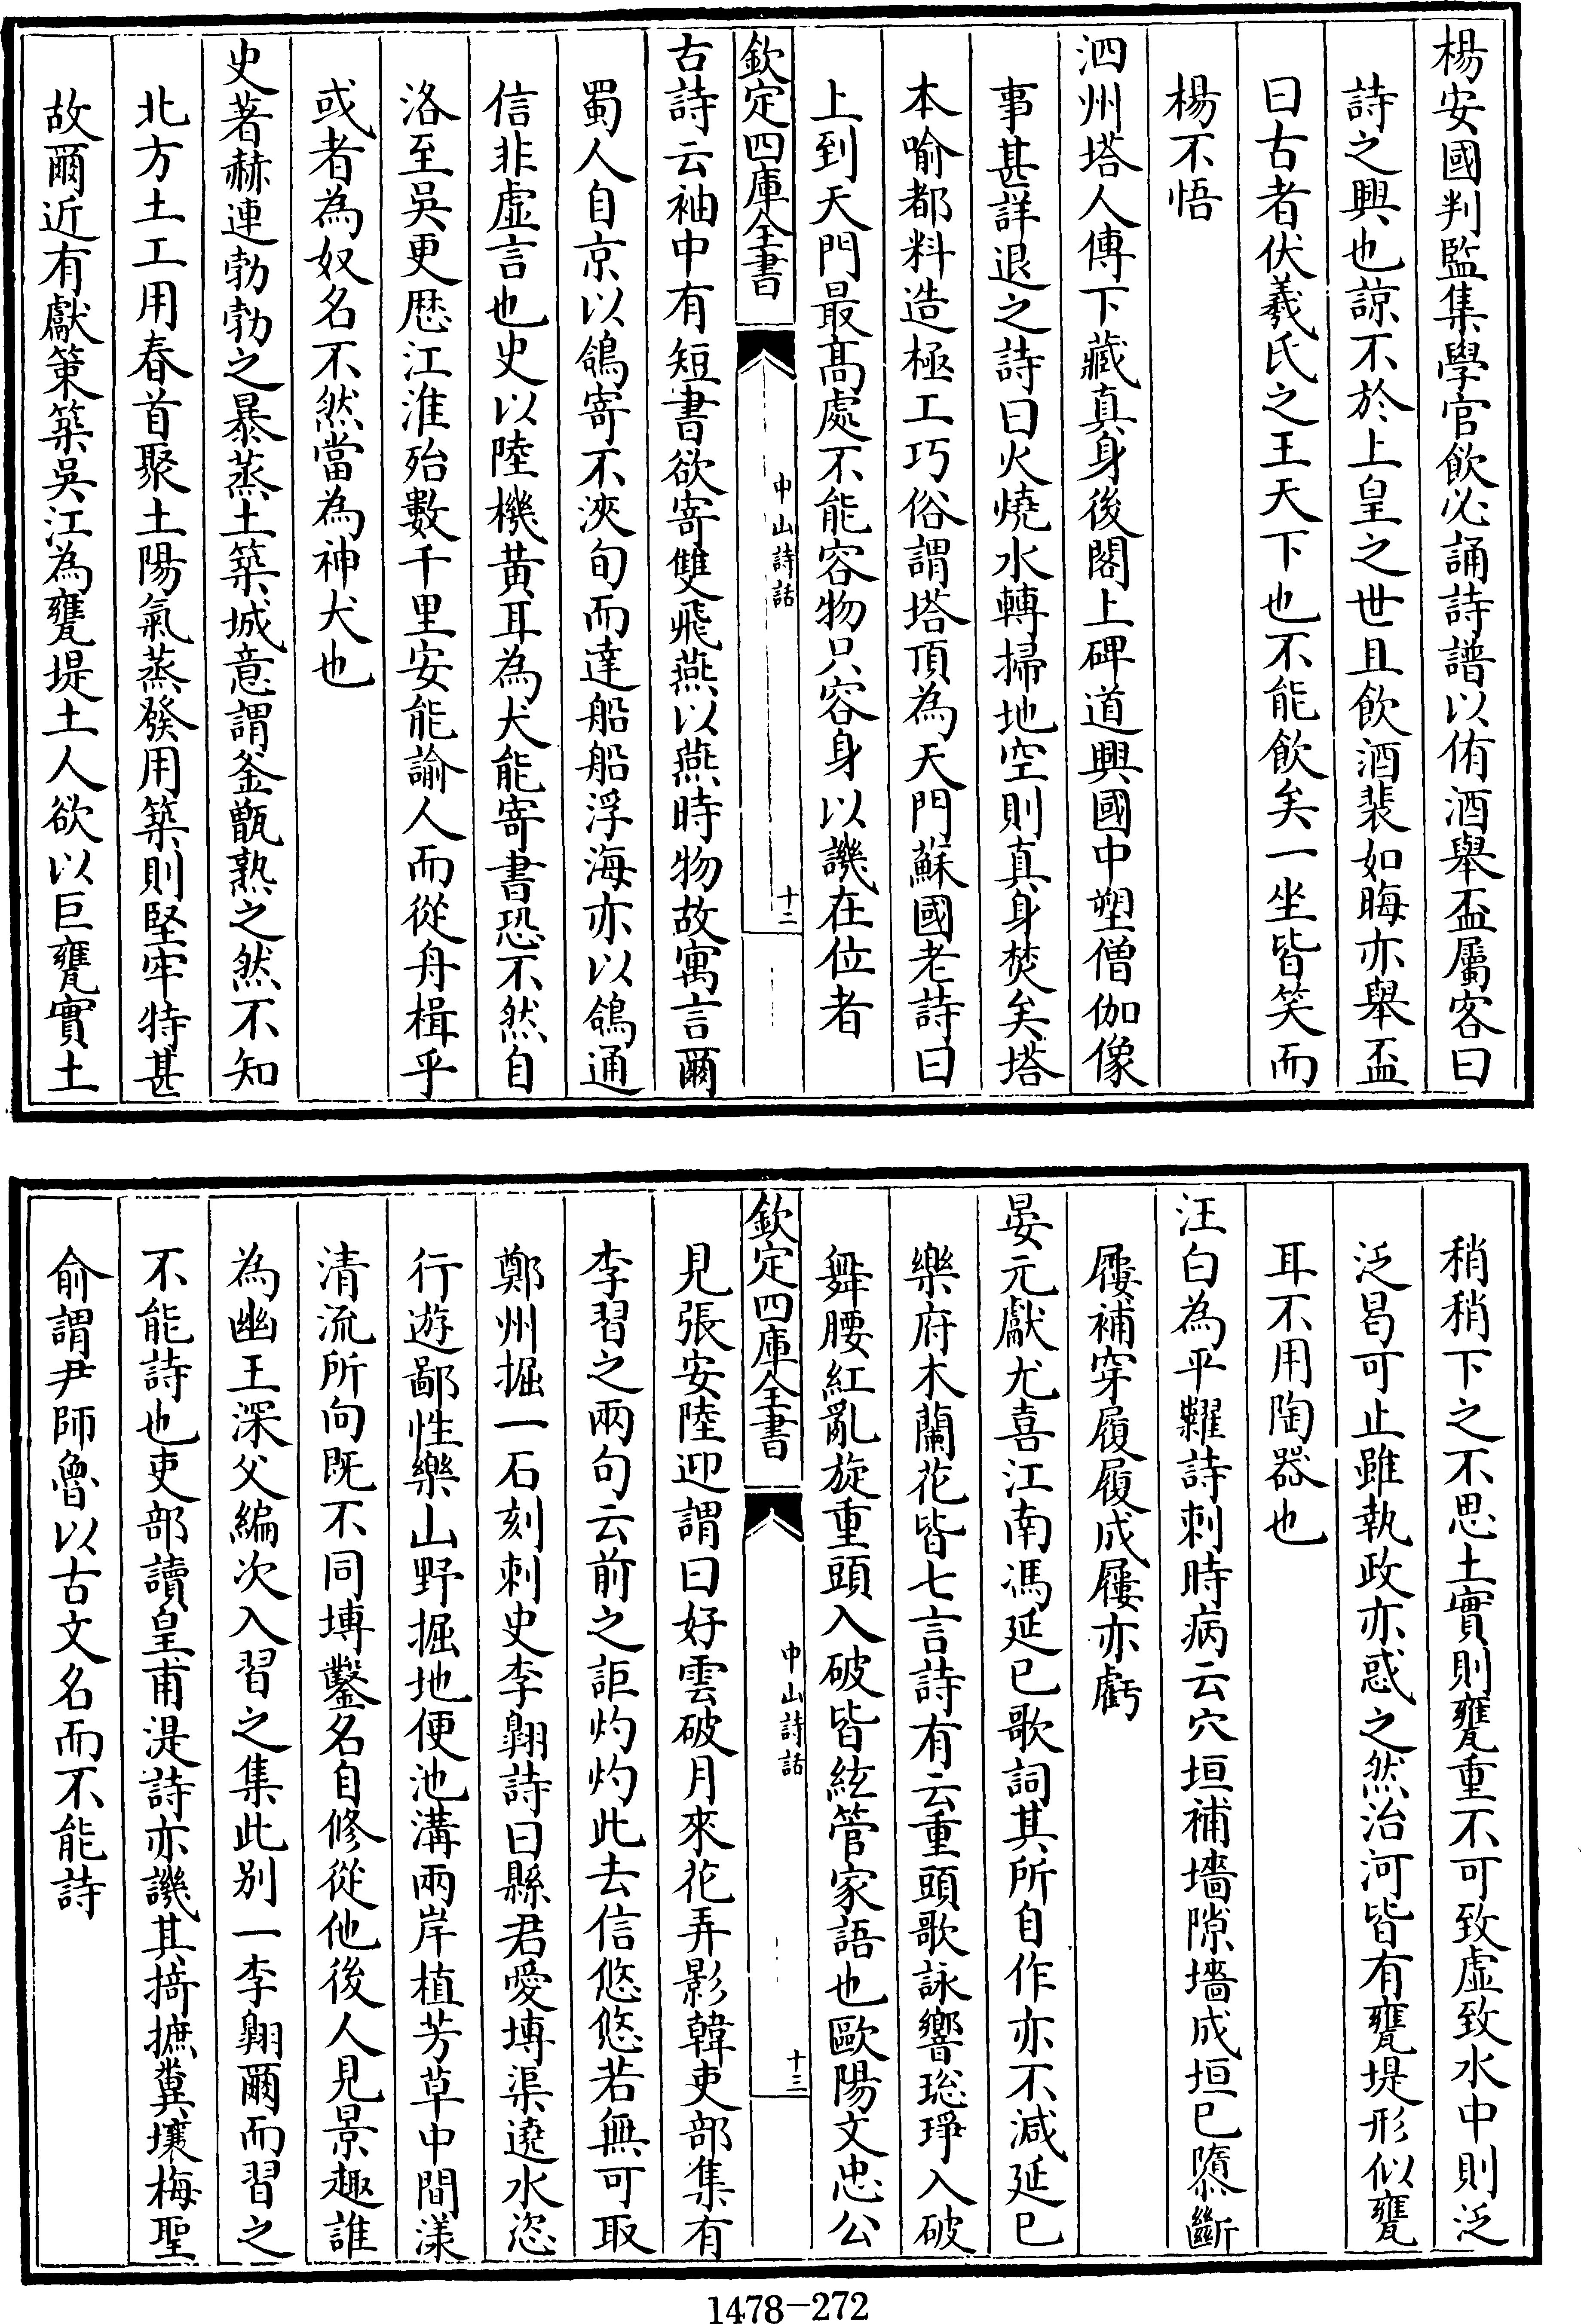 楊安國判監集學官飲必誦詩譜以侑酒舉盃屬客曰
詩之興也諒不於上皇之世且飲酒裴如晦亦舉盃
曰古者伏羲氏之王天下也不能飲矣一坐皆笑而
楊不悟
泗州塔人傳下藏真身後閣上碑道興國中塑僧伽像
事甚詳退之詩曰火燒水轉掃地空則真身焚矣塔
本喻都料造極工巧俗謂塔頂為天門蘇國老詩曰
上到天門最髙處不能容物只容身以譏在位者
欽定四庫全書
中山詩話
十二
古詩云袖中有短書欲寄雙飛燕以燕時物故寓言爾
蜀人自京以鴿寄不浹旬而達船船浮海亦以鴿通
信非虛言也史以陸機黃耳為犬能寄書恐不然自
洛至吳更厯江淮殆數千里安能諭人而從舟楫乎
或者為奴名不然當為神犬也
史著赫連勃勃之暴蒸土築城意謂釜甑熟之然不知
北方土工用春首聚土陽氣蒸發用築則堅牢特甚
故爾近有獻策築吳江為甕堤土人欲以巨甕實土
稍稍下之不思土實則甕重不可致虛致水中則泛
泛曷可止雖執政亦惑之然治河皆有甕堤形似甕
耳不用陶器也
汪白為平糶詩刺時病云穴垣補墻隙墻成垣已隳斷
屨補穿履履成屨亦虧
晏元獻尤喜江南馮延已歌詞其所自作亦不减延已
樂府木蘭花皆七言詩有云重頭歌詠響琤琮入破
舞腰紅亂旋重頭入破皆絃管家語也歐陽文忠公
欽定四庫全書
中山詩話
十三
見張安陸迎謂曰好雲破月來花弄影韓吏部集有
李習之兩句云前之詎灼灼此去信悠悠若無可取
鄭州掘一石刻刺史李翺詩曰縣君愛塼渠遶水恣
行遊鄙性樂山野掘地便池溝兩岸植芳草中間漾
清流所向既不同塼鑿名自修從他後人見景趣誰
為幽王深父編次入習之集此别一李翺爾而習之
不能詩也吏部讀皇甫湜詩亦譏其掎摭糞壤梅聖
俞謂尹師魯以古文名而不能詩
1478—272